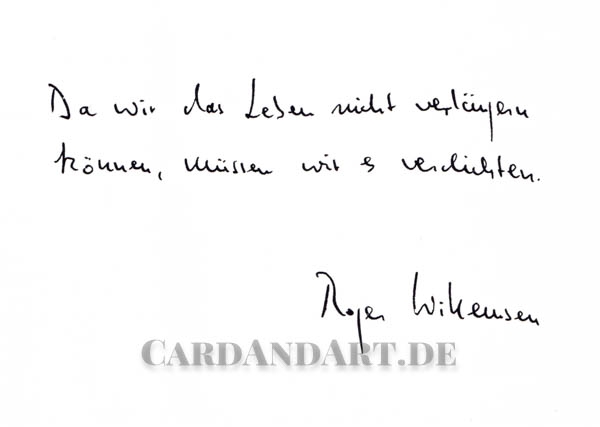 Da wir das Leben nicht verlängern
können, müssen wir es verdichten.
Roger Willemsen
CARDANDART.DE